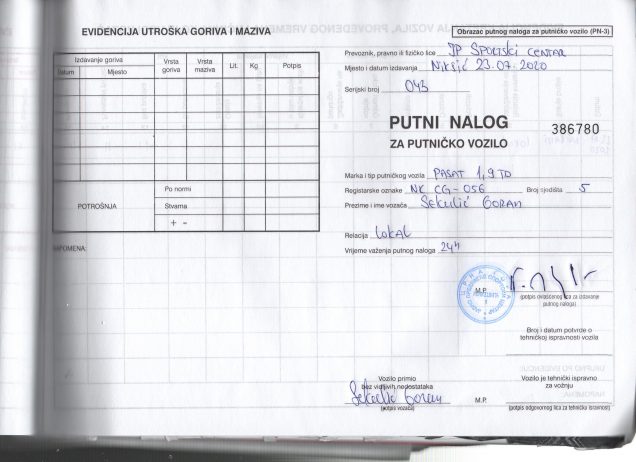 EVIDENCIJA UTROŠKA GORIVA I MAZIVA
Izdavanje goriva
Datum
Mjesto
Vrsta goriva
Vrsta maziva
Lit.
Kg
Potpis
POTROŠNJA
Po normi
Stvarna
+ -
NAPOMENA:
Obrazac putnog naloga za putničko vozilo (PN-3)
Prevoznik, pravno ili fizičko lice JP SPORTSKI CENTAR
Mjesto i datum izdavanja NIKŠIĆ 23.07.2020
Serijski broj 043
PUTNI NALOG
386780
ZA PUTNIČKO VOZILO
Marka i tip putničkog vozila PASAT 1,9 TD
Registarske oznake NK CG-056 Broj sjedišta 5
Prezime i ime vozača SEKULIĆ GORAN
Relacija LOKAL
Vrijeme važenja putnog naloga 24h
M.P.
(potpis ovlašćenog lica za izdavanje
putnog naloga)
Broj i datum potvrde o
tehničkoj ispravnosti vozila
Vozilo primio
bez vidljivih nedostataka
Sekulić Goran
(potpis vozača)
Vozilo je tehnički ispravno
za vožnju
M.P.
(potpis odgovornog lica za tehničku ispravnost)